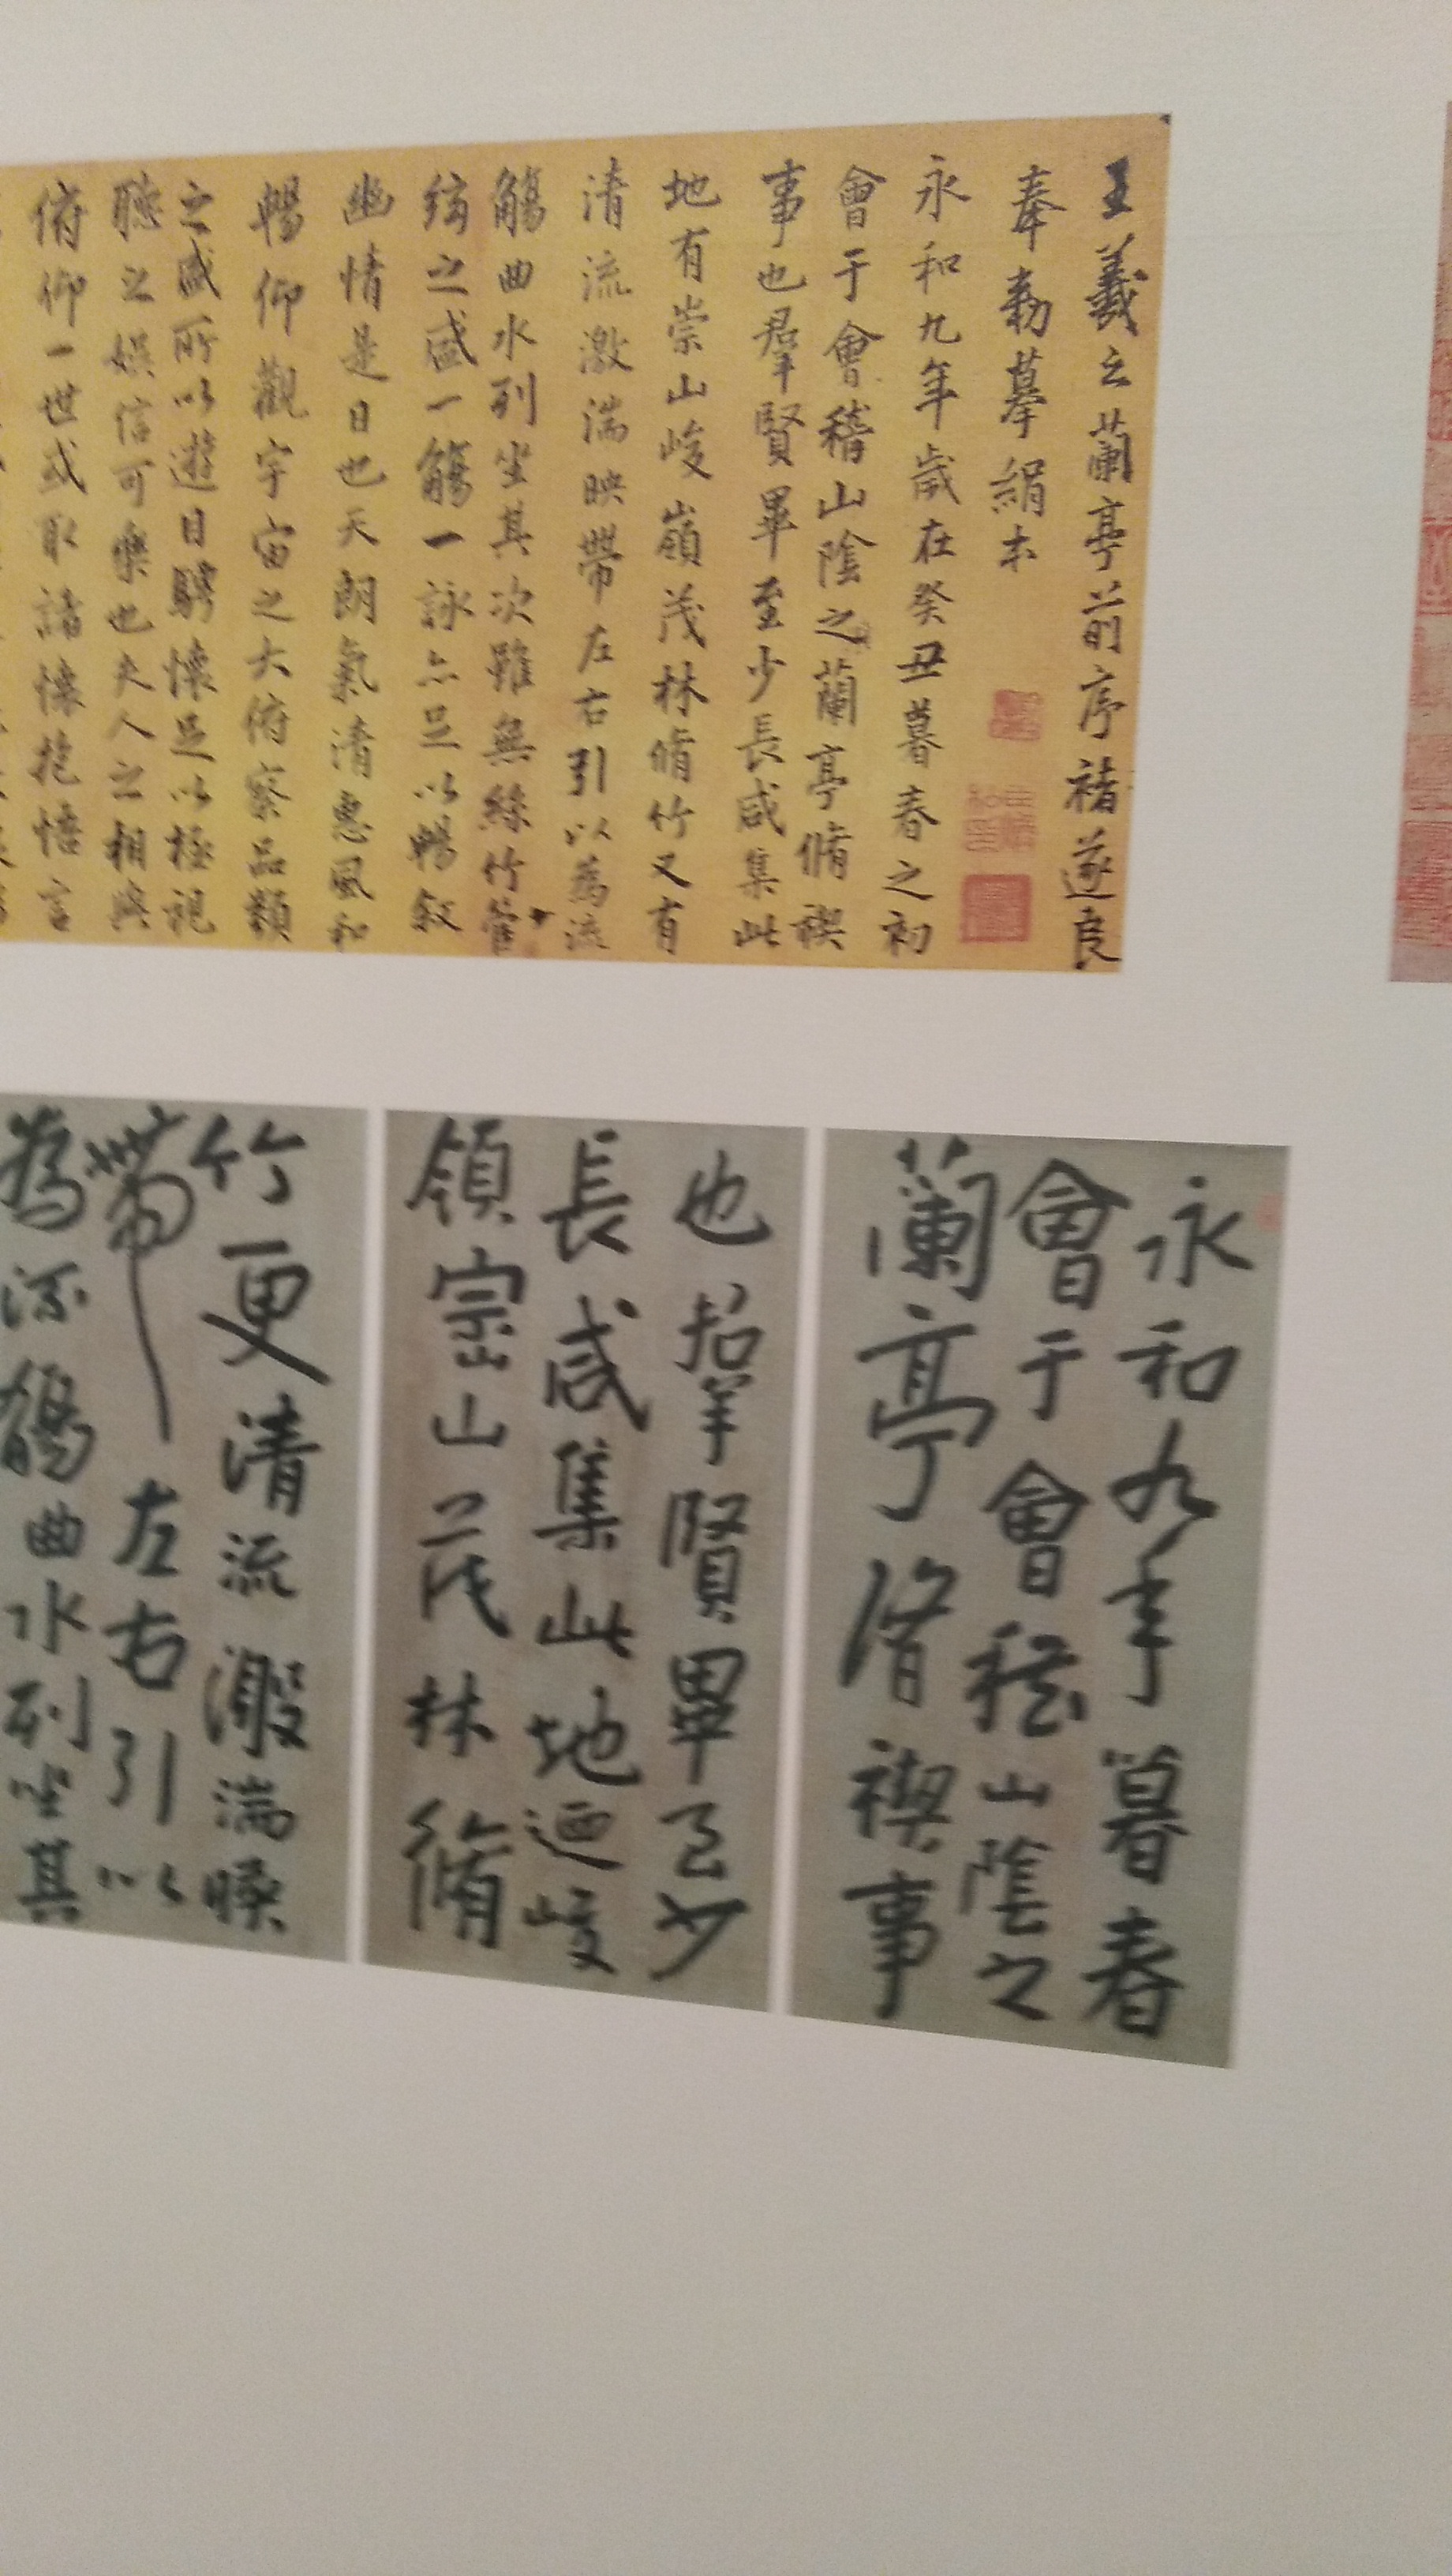 王羲之蘭亭前序褚遂良
奉勅摹絹本
永和九年歲在癸丑暮春之初
會于會稽山陰之蘭亭脩禊
事也羣賢畢至少長咸集此
地有崇山峻嶺茂林脩竹又有
清流激湍映帶左右引以為流
觴曲水列坐其次雖無絲竹管
絃之盛一觴一詠亦足以暢敘
幽情是日也天朗氣清惠風和
暢仰觀宇宙之大俯察品類
之盛所以遊目騁懷足以極視
聽之娛信可樂也夫人之相與
俯仰一世或取諸懷抱悟言
永和九年暮春
會于會稽山陰之
蘭亭脩禊事
也羣賢畢至少
長咸集此地迺峻
領崇山茂林脩
竹更清流激湍暎
帶左右引以
為流觴曲水列坐其